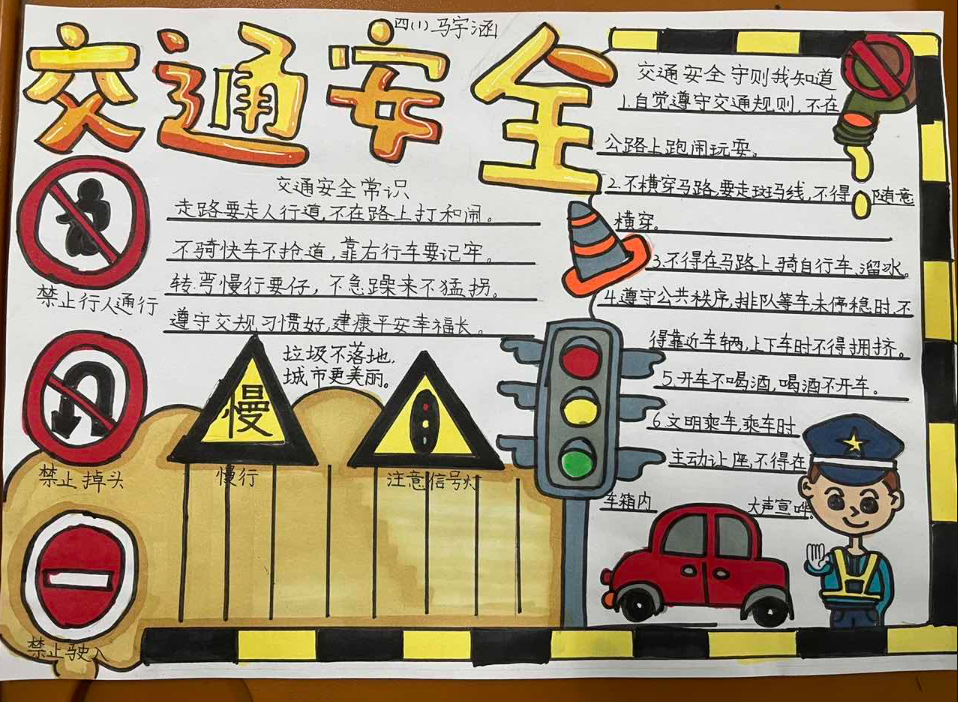 四(1)马宇涵
交通安全
交通安全常识
走路要走人行道,不在路上打和闹。
不骑快车不抢道,靠右行车要记牢。
转弯慢行要仔,不急躁来不猛拐。
遵守交规习惯好,建康平安幸福长。
垃圾不落地,
城市更美丽。
禁止行人通行
禁止掉头
禁止驶入
慢
慢行
注意信号灯
交通安全守则我知道
1.自觉遵守交通规则,不在
公路上跑闹玩耍。
2.不横穿马路,要走斑马线,不得随意
横穿。
3.不得在马路上骑自行车,溜冰。
4.遵守公共秩序,排队等车未停稳时,不
得靠近车辆,上下车时不得拥挤。
5.开车不喝酒,喝酒不开车。
6.文明乘车,乘车时
主动让座,不得在
车箱内大声宣哗